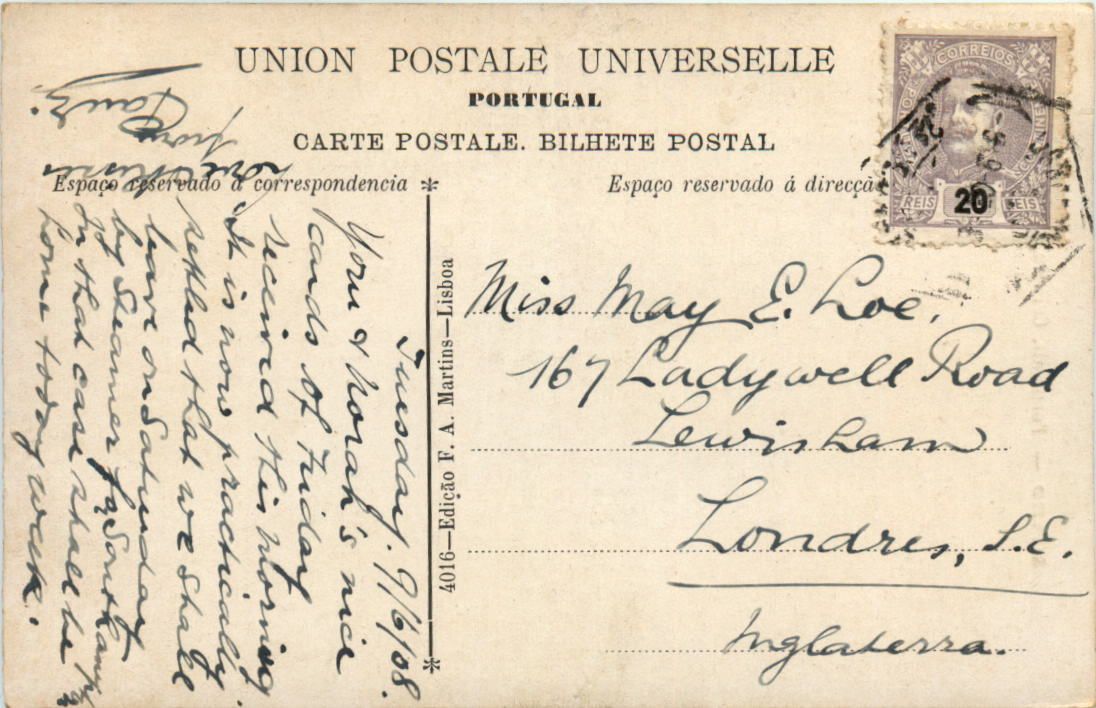 UNION POSTALE UNIVERSELLE
PORTUGAL
CARTE POSTALE. BILHETE POSTAL
Espaço reservado á correspondencia
Espaço reservado á direcçã
CORREIOS
20
REIS REIS
4016—Edição F. A. Martins—Lisboa
Tuesday. 9/6/08.
Your & Norah's nice
cards of Friday
received this morning
It is now practically
settled that we shall
leave on Saturday
by Steamer for Southampton
In that case shall be
home today week.
from
Miss May E. Loe,
167 Ladywell Road
Lewisham
Londres, S.E.
Inglaterra.